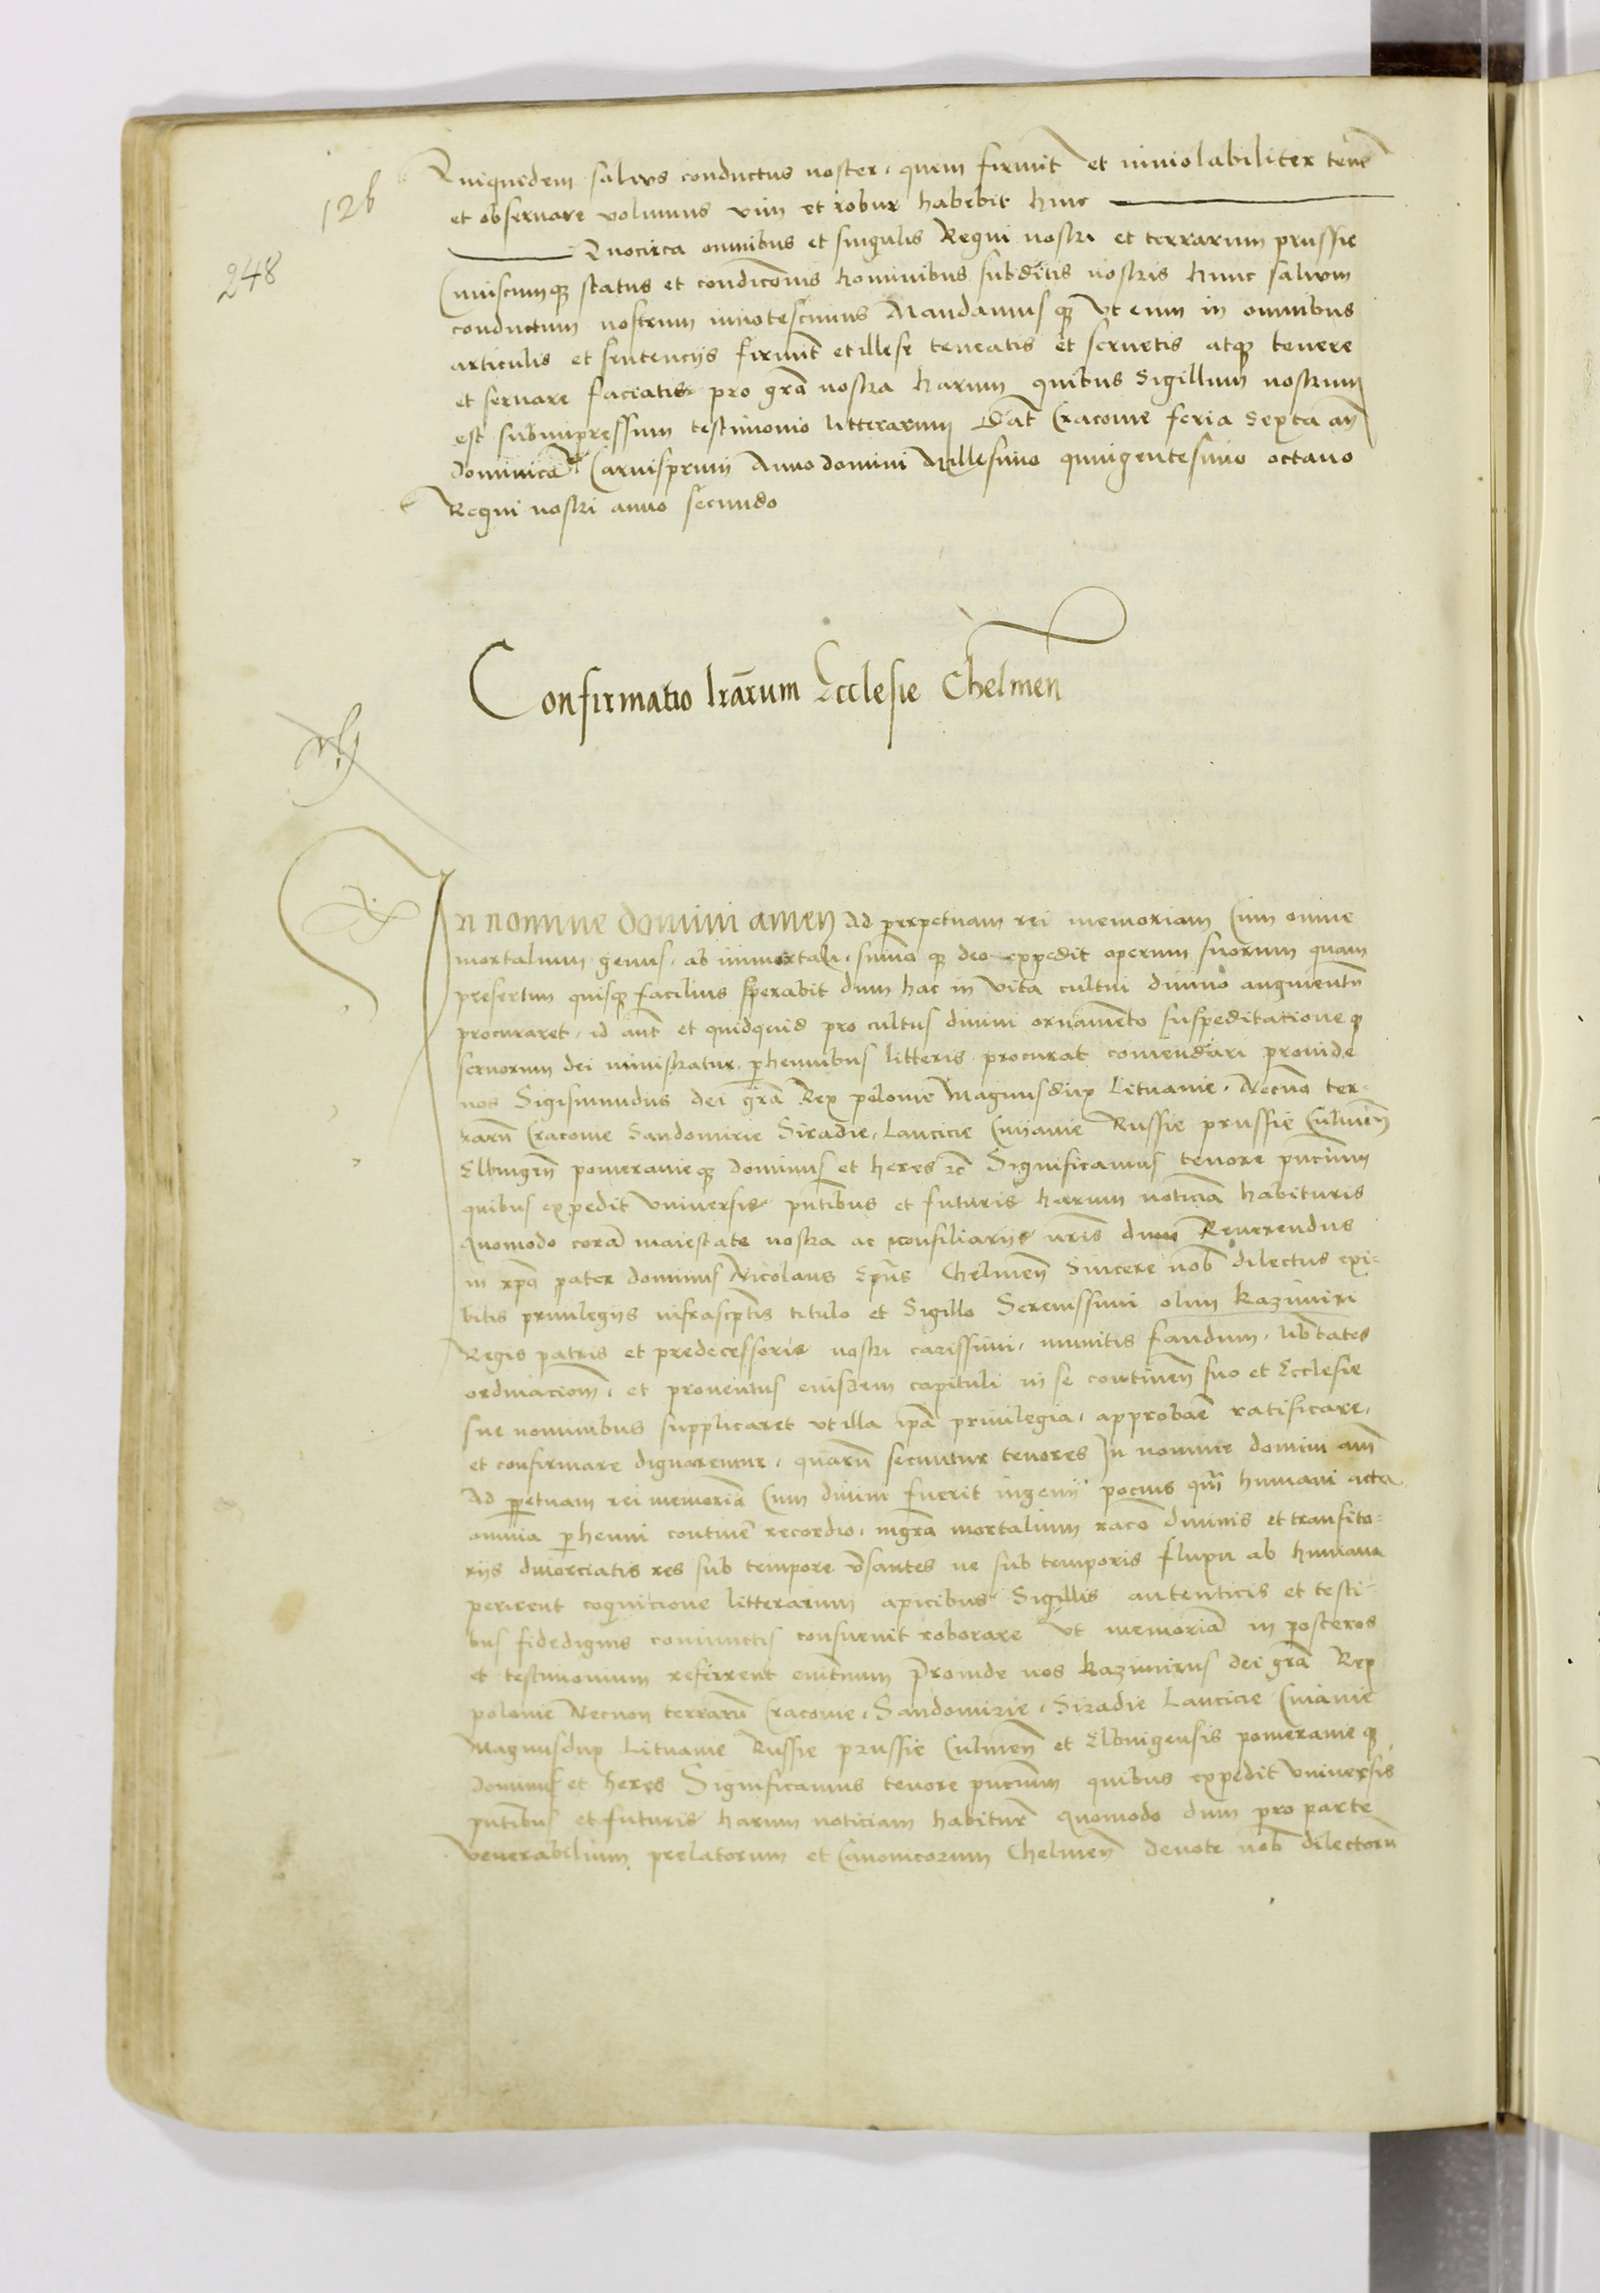 12b
248
Quiquidem salvus conductus noster, quem firmit̄ et inviolabiliter tene͂
et observare volumus vim et robur habebit hinc
Quocirca omnibus et singulis Regni nostri et terrarum prussie
Cuiuscumqꝫ status et condicōnis hominibus subditis nostris hunc salvum
conductum nostrum innotescimus Mandamusqꝫ Ut eum in omnibus
articulis et sentenciis firmit̄ et illese teneatis et servetis atqꝫ tenere
et servare faciatis pro gr̄a nostra harum quibus Sigillum nostrum
est subimpressum testimonio litterarum Dat̄ Cracovie feria sexta an̄
dominicā Carnisprivii Anno domini Millesimo quingentesimo octavo
Regni nostri anno secundo
Confirmatio lr̄arum Ecclesie Chelmen̄
In nomine domini amen Ad perpetuam rei memoriam Cum omne
mortalium genus, ab immortali, summoqꝫ deo expedit operum suorum quam
presertim quisqꝫ facilius sperabit dum hac in vita cultui divino augmentū
procuraret, id aut̄ et quidquid pro cultus divini ornamento suspeditationeqꝫ
servorum dei ministratur, p̱hennibus litteris procurat comendari proinde
nos Sigismundus dei gr̄a Rex polonie Magnusdux Lituanie, Necnō ter-
rarū Cracovie Sandomirie Siradie, Lancicie Cuiavie Russie prussie Culmen̄
Elbingen̄ pomeranieqꝫ dominus et heres ꝛc̄ Significamus tenore pn̄cium
quibus expedit universis pn̄tibus et futuris harum noticiā habituris
Quomodo corā maiestate nostra ac consiliariis nr̄is dum Reverendus
in xp̄o pater dominus Nicolaus Ep̄us Chelmen̄ Sincere nob̄ dilectus exi-
bitis privilegiis infrascp̄tis titulo et Sigillo Serenissimi olim Kazimiri
Regis patris et predecessoris nostri carissimi, munitis fandum, lib̄tates
ordinacionē, et proventus eiusdem capituli in se continen̄ suo et Ecclesie
sue nominibus supplicaret ut illa ip̄a privilegia, approbāe ratificare,
et confirmare dignaremur, quarū secuntur tenores In nomine domini am̄
Ad p̱petuam rei memoriā Cum divini fuerit ingenii pocius qm̄ humani acta
omnia p̱henni continē recordio, ingr̄a mortalium racō divinis et transito-
riis divorciatis res sub tempore v̄santes ne sub temporis fluxu ab humana
perirent cognicione litterarum apicibus Sigillis autenticis et testi-
bus fidedignis coniunctis consuevit roborare Ut memoriā in posteros
et testimonium referrent evit̄num Proinde nos Kazimirus dei gr̄a Rex
polonie Necnon terrarū Cracovie, Sandomirie, Siradie Lancicie Cuiavie
Magnusdux Lituanie Russie prussie Culmen̄ et Elbingensis pomeranieqꝫ
dominus et heres Significamus tenore pn̄cium quibus expedit universis
pn̄tibus et futuris harum noticiam habitur̄ Quomodo dum pro parte
Venerabilium prelatorum et Canonicorum Chelmen̄ devote nob̄ dilectorū